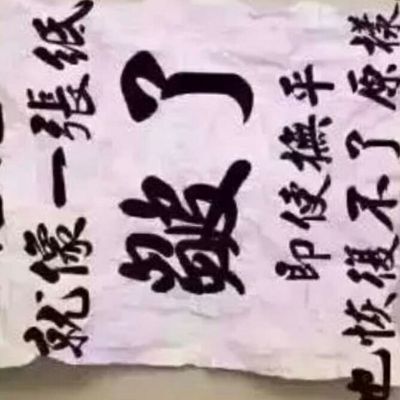 就像一張紙
皺了
即使撫平
也恢復不了原樣